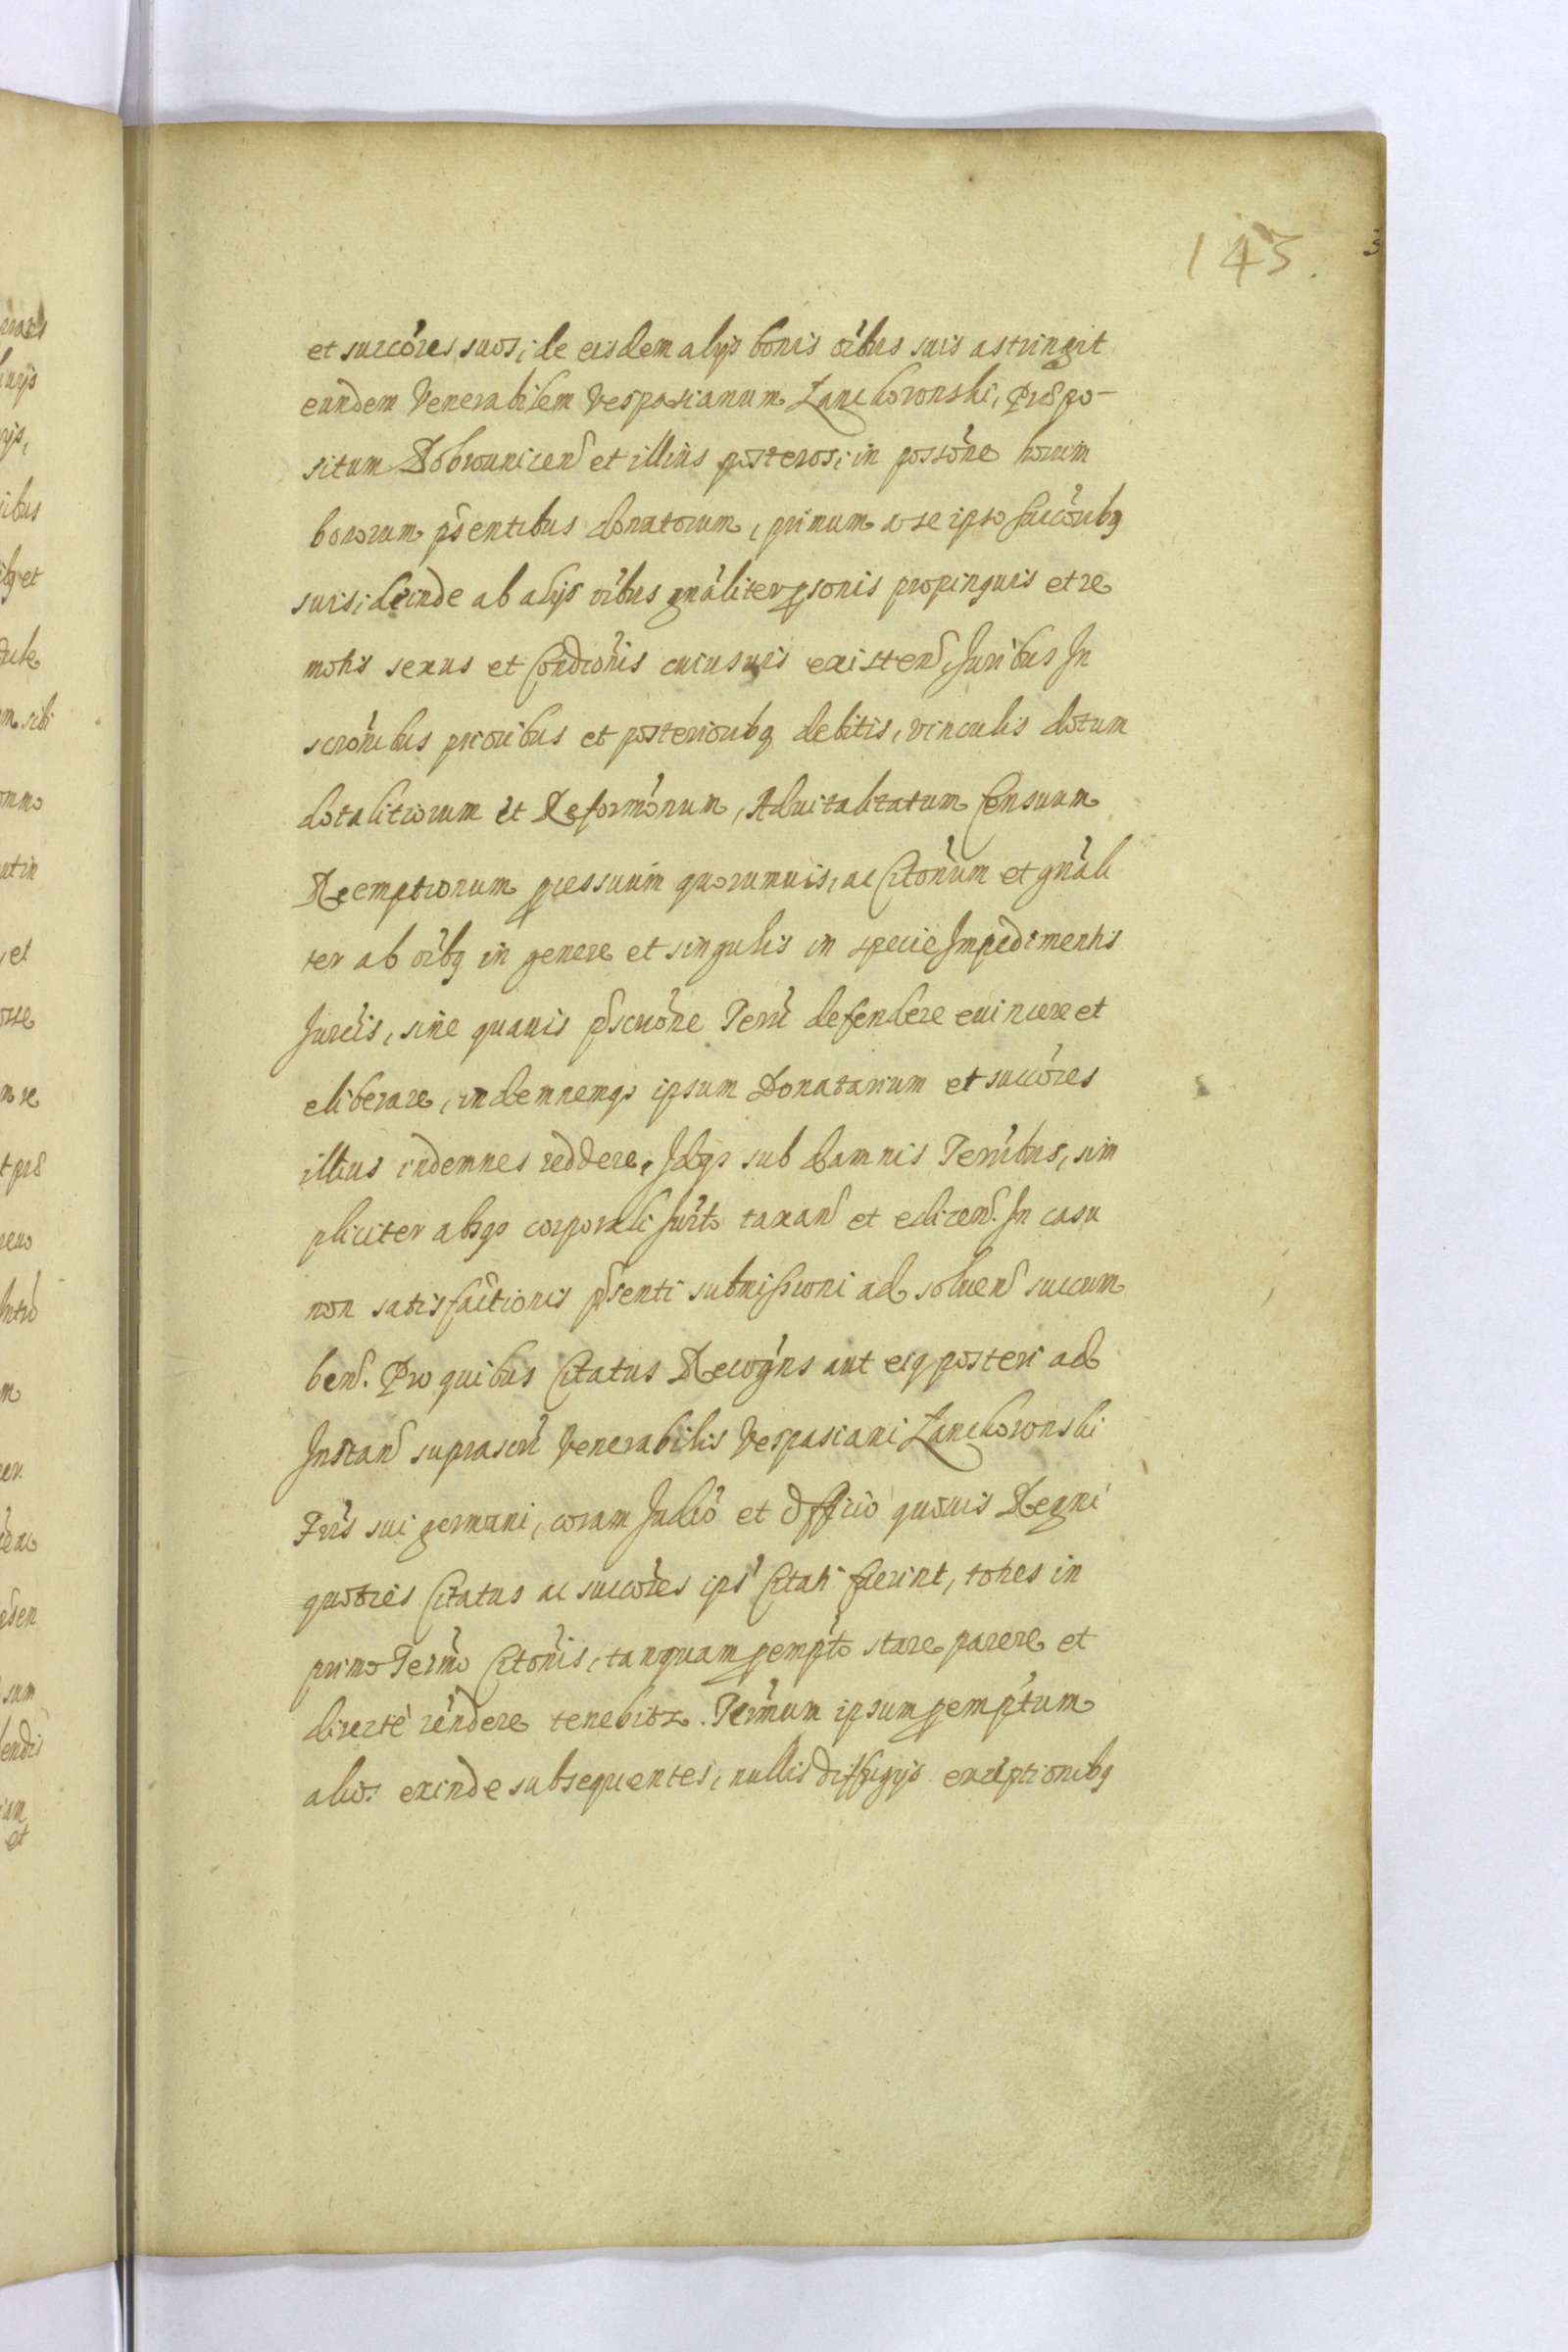 143.
et succores suos, de eisdem alijs bonis oibus suis astringit
eundem Venerabilem Vespasianum Lanckoronski, Præpo-
situm Dobrovnicen et illius posteros, in possone horum
bonorum pŝentibus donatorum, primum a se ipso succoribq
suis, deinde ab alijs oibus gnaliter psonis propinquis et re
motis sexus et Condionis cuiusuis existen, Juribus In
scronibus prioribus et posterioribq debitis, vinculis dotum
dotalitiorum et Reformonum, Aduitalitatum Censuum
Reemptionum pressuum quorumuis, ac Citonum et gnali
ter ab oibq in genere et singulis in specie Impedimentis
Jurcis, sine quauis pscuone Terri defendere euincere et
eliberare, indemnemqs ipsum Donatarium et succores
illius indemnes reddere, Idqs sub damnis Terribus, sim
pliciter absqs corporali Jurto taxan et edicen. In casu
non satisfactionis pŝenti submissioni ad soluen succum
ben. Pro quibus Citatus Recogns aut eiq posteri ad
Instan suprascri Venerabilis Vespasiani Lanckoronski
Fris sui germani, coram Judio et Officio quouis Regni
quoties Citatus ac succores ipsi Citati fuerint, toties in
primo Termo Citonis, tanquam pempto stare parere et
directe rendere tenebitr. Termum ipsum pemptum
alios exinde subsequentes, nullis diffugijs exceptionibq